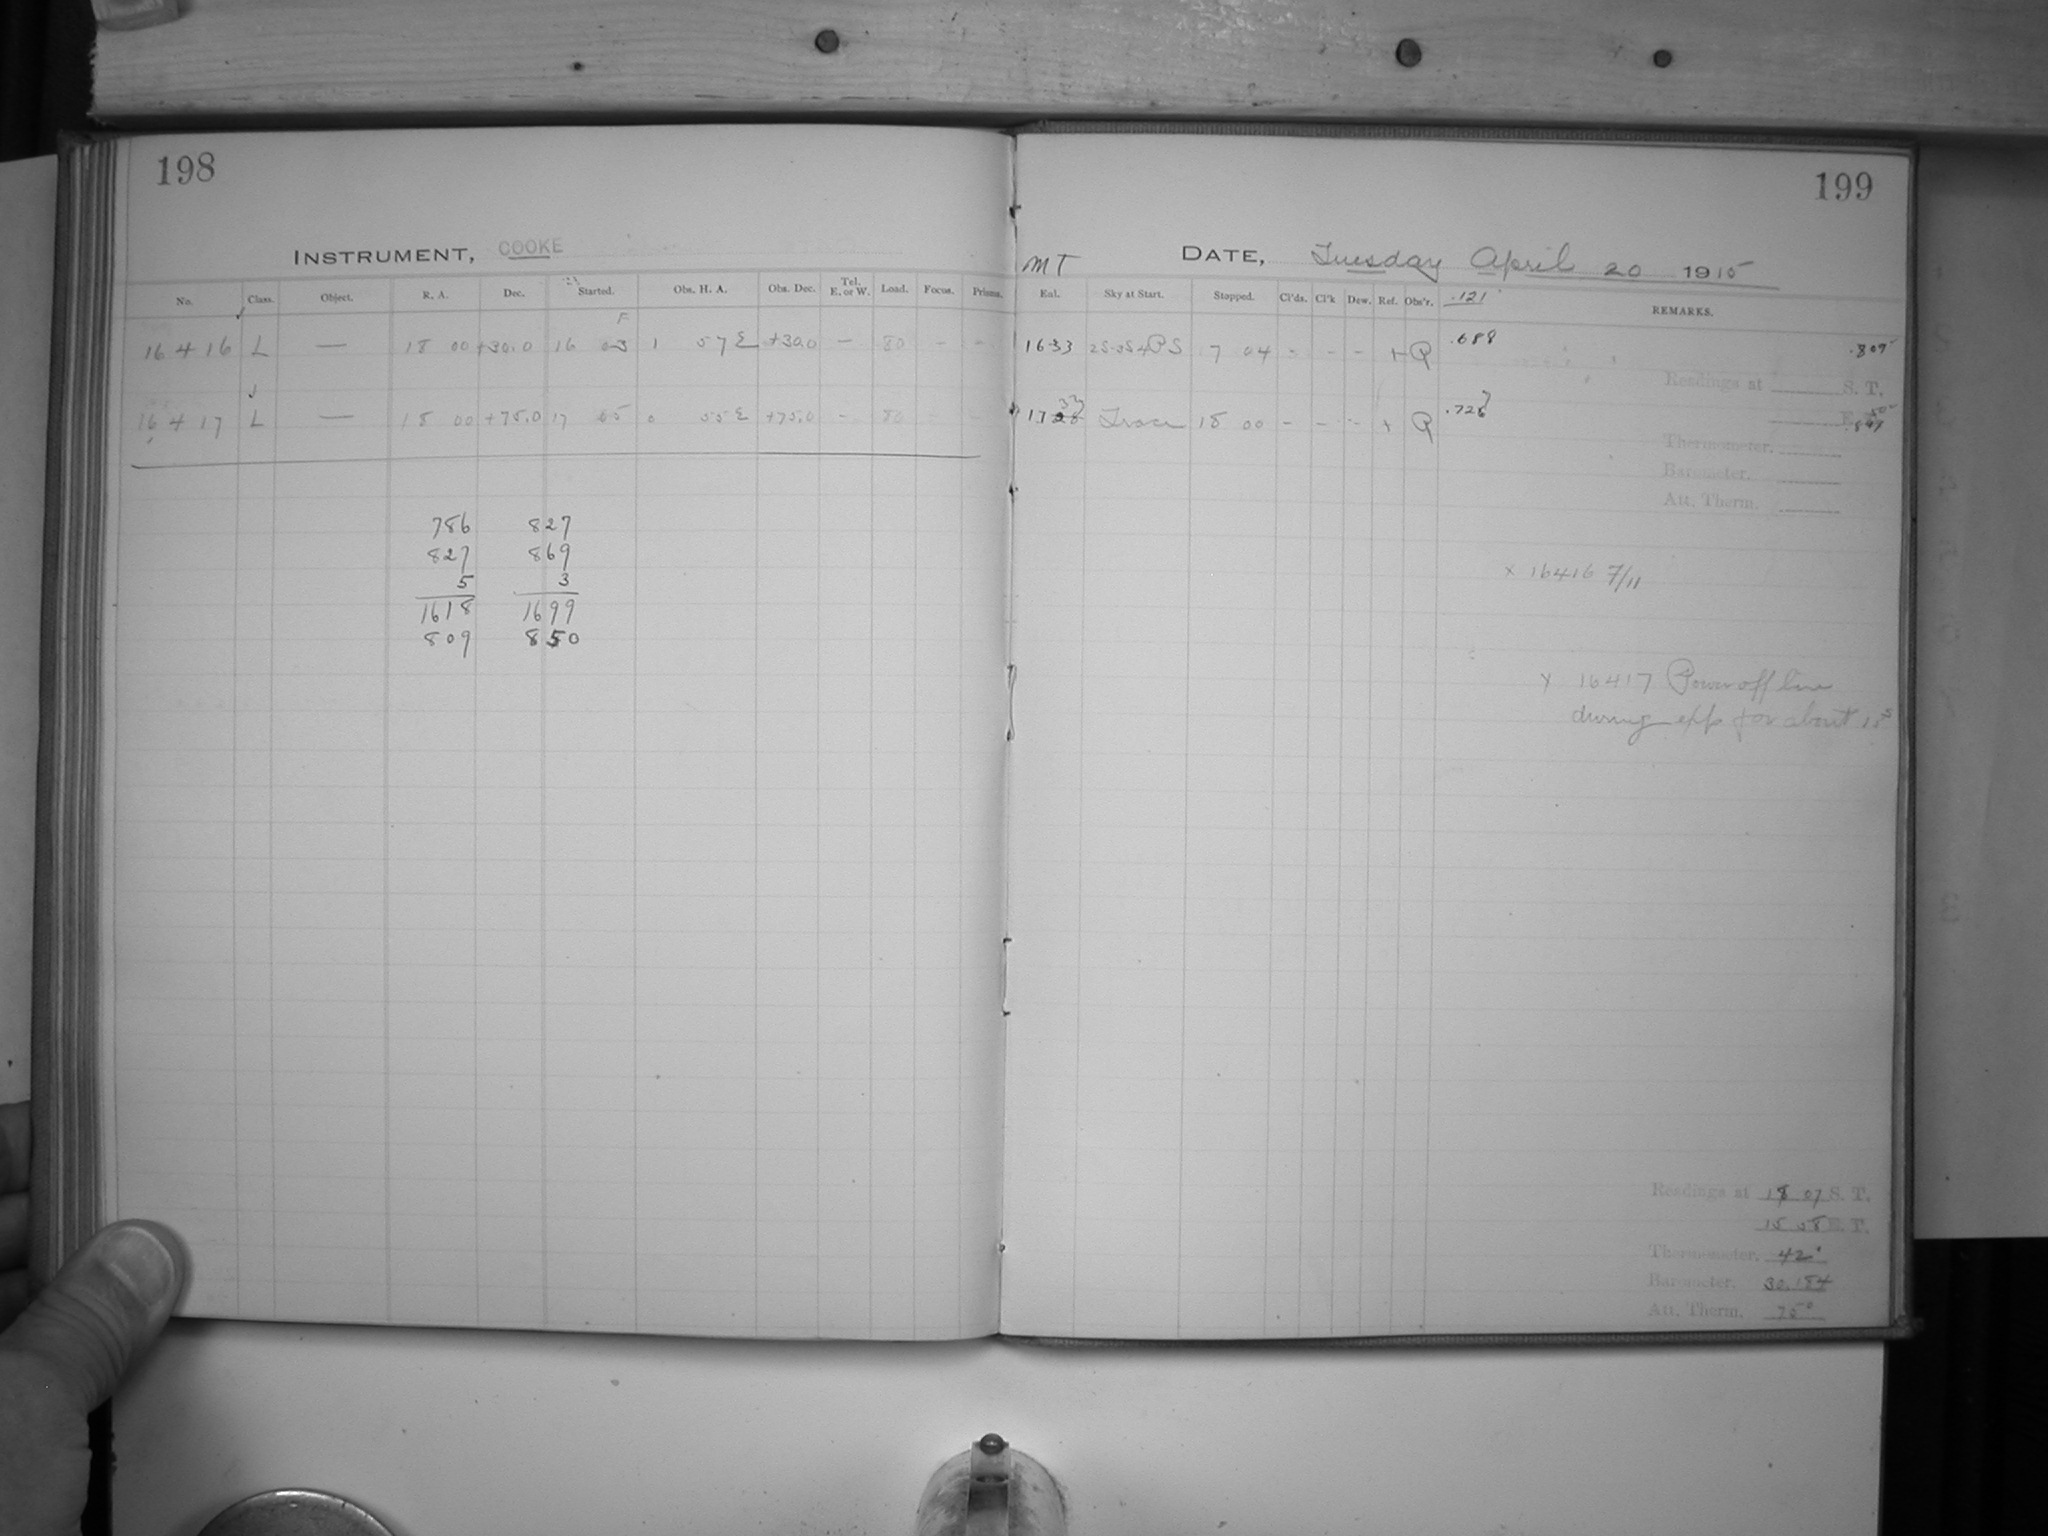 198
INSTRUMENT, COOKE
No. Class. Object. R. A. Dec. Started. Obs. H. A. Obs. Dec. Tel. E. or W. Load. Focus. Prisms.
F
16416 L — 18 00 +30.0 16 03 1 57 E +30.0 — 80 - -
16417 L — 18 00 +75.0 17 05 0 55 E +75.0 — 80 - -
786 827
827 869
5 3
1618 1699
809 850
199
MT DATE, Tuesday April 20 1915
Eql. Sky at Start. Stopped. Cl'ds. Cl'k Dew. Ref. Obs'r. .121 REMARKS.
1633 17 04 - - - + .688 .809
Readings at S. T.
1728 33 Trace 18 00 - - - + .728 7
E. T.
Thermometer.
Barometer.
Att. Therm.
x 16416 7/11
x 16417 Power off line
during exp for about
Readings at 18 07 S. T.
15 08 E. T.
Thermometer. 42°
Barometer. 30.184
Att. Therm. 75°